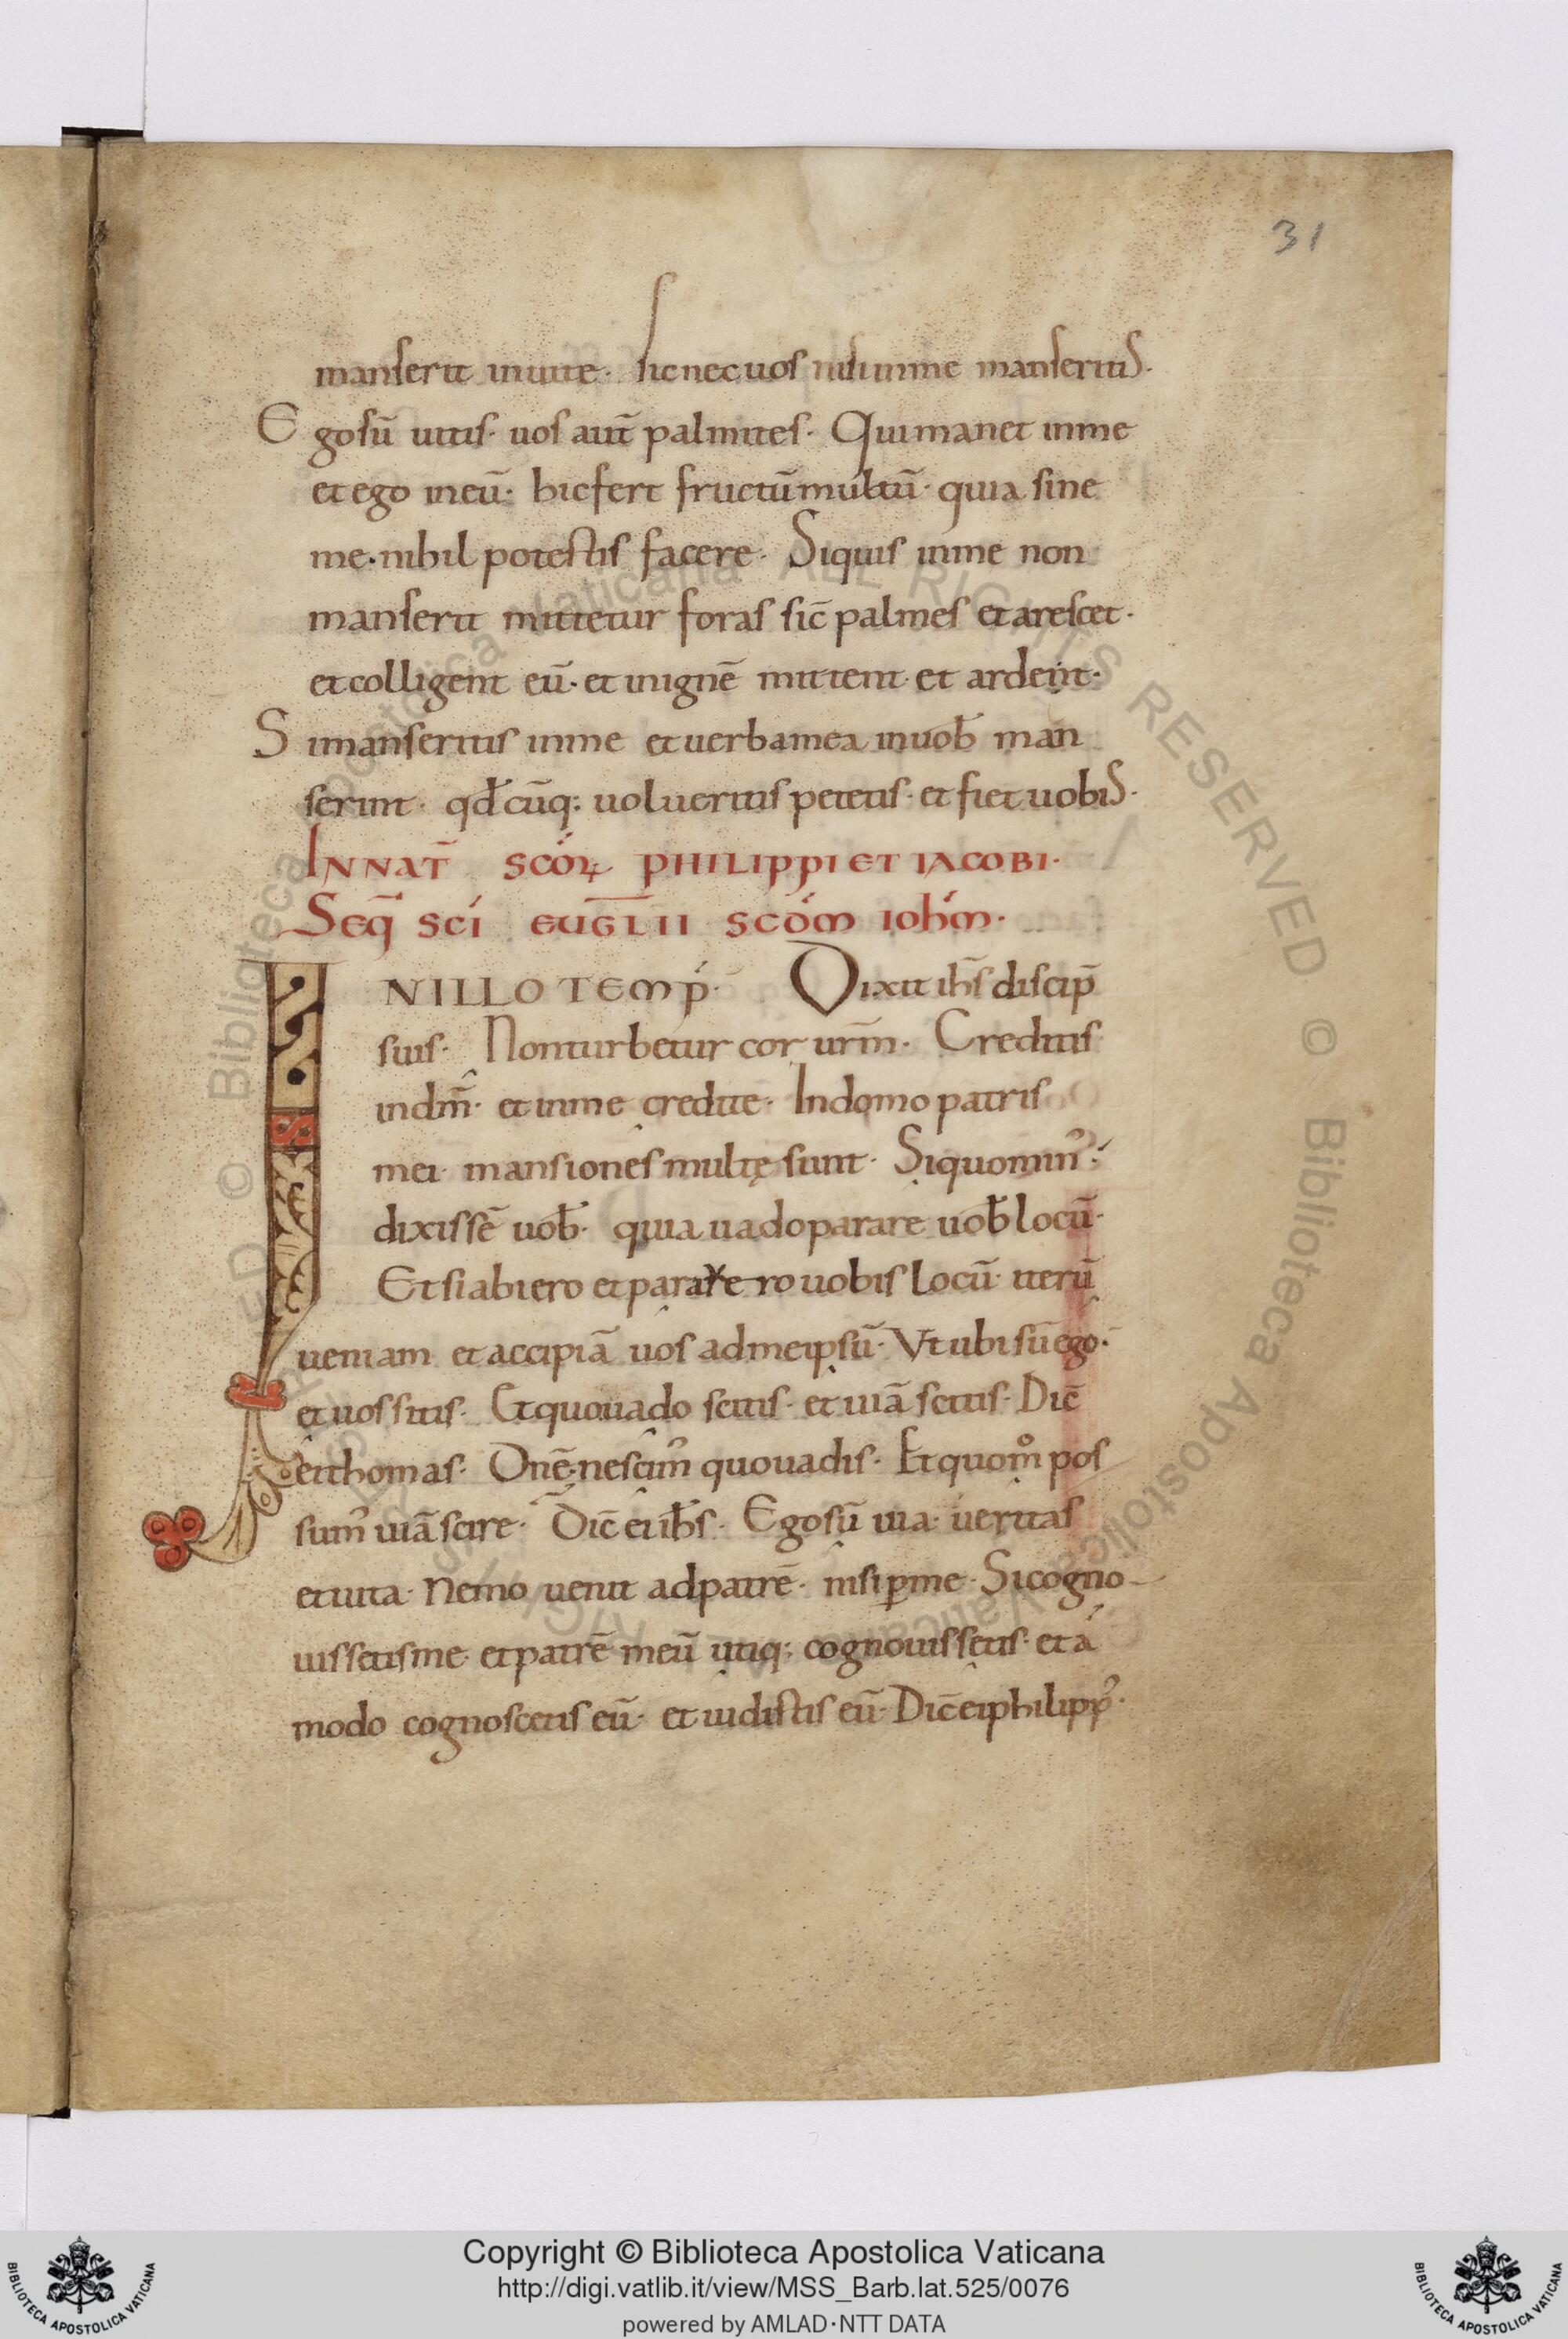 31
manserit inuite. Sic nec uos nisi inme manseritis.
Ego sū uitis. uos aut̄ palmites. Qui manet inme
et ego ineū. hic fert fructū multū. quia sine
me. nihil potestis facere. Siquis inme non
manserit mittetur foras sic̄ palmes et arescet.
et colligent eū. et inignē mittent. et ardent.
Si manseritis inme et uerba mea inuob̄ man
serint. qd̄cūq; uolueritis petetis. et fiet uobis.
IN NAT̄ SCŌꝜ PHILIPPI ET IACOBI.
Seq̄ SCI EUḠLII SCDM IOHM.
IN ILLO TEMP̄. Dixit ih̄s discip̄
suis. Non turbetur cor ur̄m. Creditis
indm̄. et inme credite. In domo patris
mei mansiones multę sunt. Siquomin᾽.
dixissē uob̄. quia uado parare uob̄ locū.
Et si abiero et pararero uobis locū. iterū
ueniam et accipiā uos admeipsū. Vt ubi sū ego.
et uos sitis. Et quo uado scitis. et uiā scitis. Dic̄
ei thomas. Dnē. nescim᾽ quo uadis. Et quom̊ pos
sum᾽ uiā scire. Dic̄ ei ih̄s. Ego sū uia. ueritas
et uita. Nemo uenit adpatrē. nisi ꝑme. Si cogno-
uissetis me. et patrē meū utiq; cognouissetis. et a
modo cognoscetis eū. et uidistis eū. Dic̄ ei philipp᾽.
© Biblioteca Apostolica Vaticana ALL RIGHTS RESERVED © Biblioteca Apostolica Vaticana ALL RIGHTS RESERVED
Copyright © Biblioteca Apostolica Vaticana
http://digi.vatlib.it/view/MSS_Barb.lat.525/0076
powered by AMLAD·NTT DATA
BIBLIOTECA APOSTOLICA VATICANA
BIBLIOTECA APOSTOLICA VATICANA